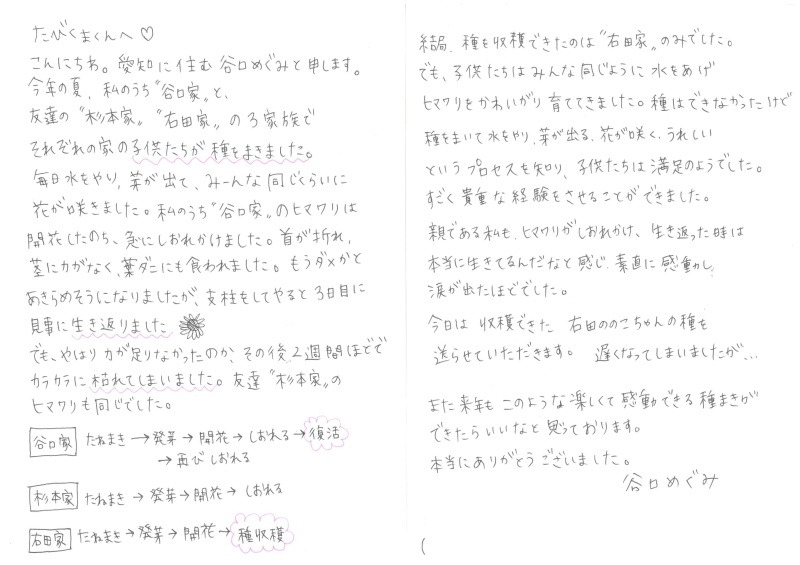 たびくまくんへ♡
こんにちわ。愛知に住む谷口めぐみと申します。
今年の夏、私のうち〝谷口家〟と、
友達の〝杉本家〟〝右田家〟の3家族で
それぞれの家の子供たちが種をまきました。
毎日水をやり、葉が出て、みーんな同じくらいに
花が咲きました。私のうち〝谷口家〟のヒマワリは
開花したのち、急にしおれかけました。首が折れ、
茎に力がなく、葉ダニにも食われました。もうダメかと
あきらめそうになりましたが、支柱をしてやると3日目に
見事に生き返りました
でも、やはり力が足りなかったのか、その後2週間ほどで
カラカラに枯れてしまいました。友達〝杉本家〟の
ヒマワリも同じでした。
谷口家 たねまき→発芽→開花→しおれる→復活
→再びしおれる
杉本家 たねまき→発芽→開花→しおれる
右田家 たねまき→発芽→開花→種収穫
結局、種を収穫できたのは〝右田家〟のみでした。
でも、子供たちはみんな同じように水をあげ
ヒマワリをかわいがり育ててきました。種はできなかったけど
種をまいて水をやり、葉が出る、花が咲く、うれしい
というプロセスを知り、子供たちは満足のようでした。
すごく貴重な経験をさせることができました。
親である私も、ヒマワリがしおれかけ、生き返った時は
本当に生きてるんだなと感じ、素直に感動し
涙が出たほどでした。
今日は収穫できた右田ののこちゃんの種を
送らせていただきます。遅くなってしまいましたが…
また来年もこのような楽しくて感動できる種まきが
できたらいいなと思っております。
本当にありがとうございました。
谷口めぐみ